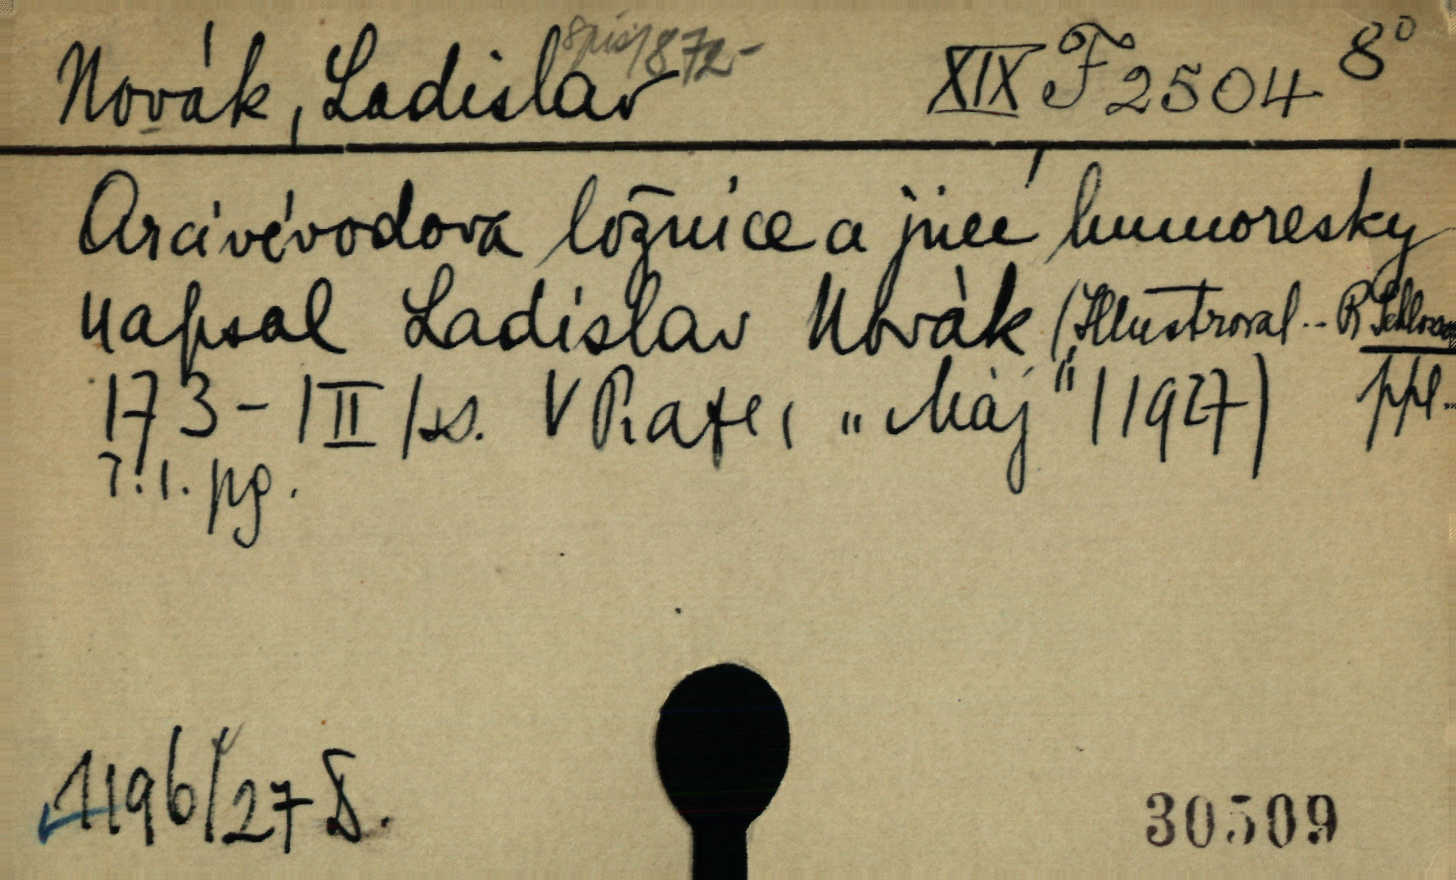 Novák, Ladislav spis. 1872- XIX F 2504 8°
Arcivévodova ložnice a jiné humoresky
napsal Ladislav Novák (Illustroval.. R
173-|II| s. V Praze, „Máj" (1927) ppl..
pg.
1196/27 D.
30509